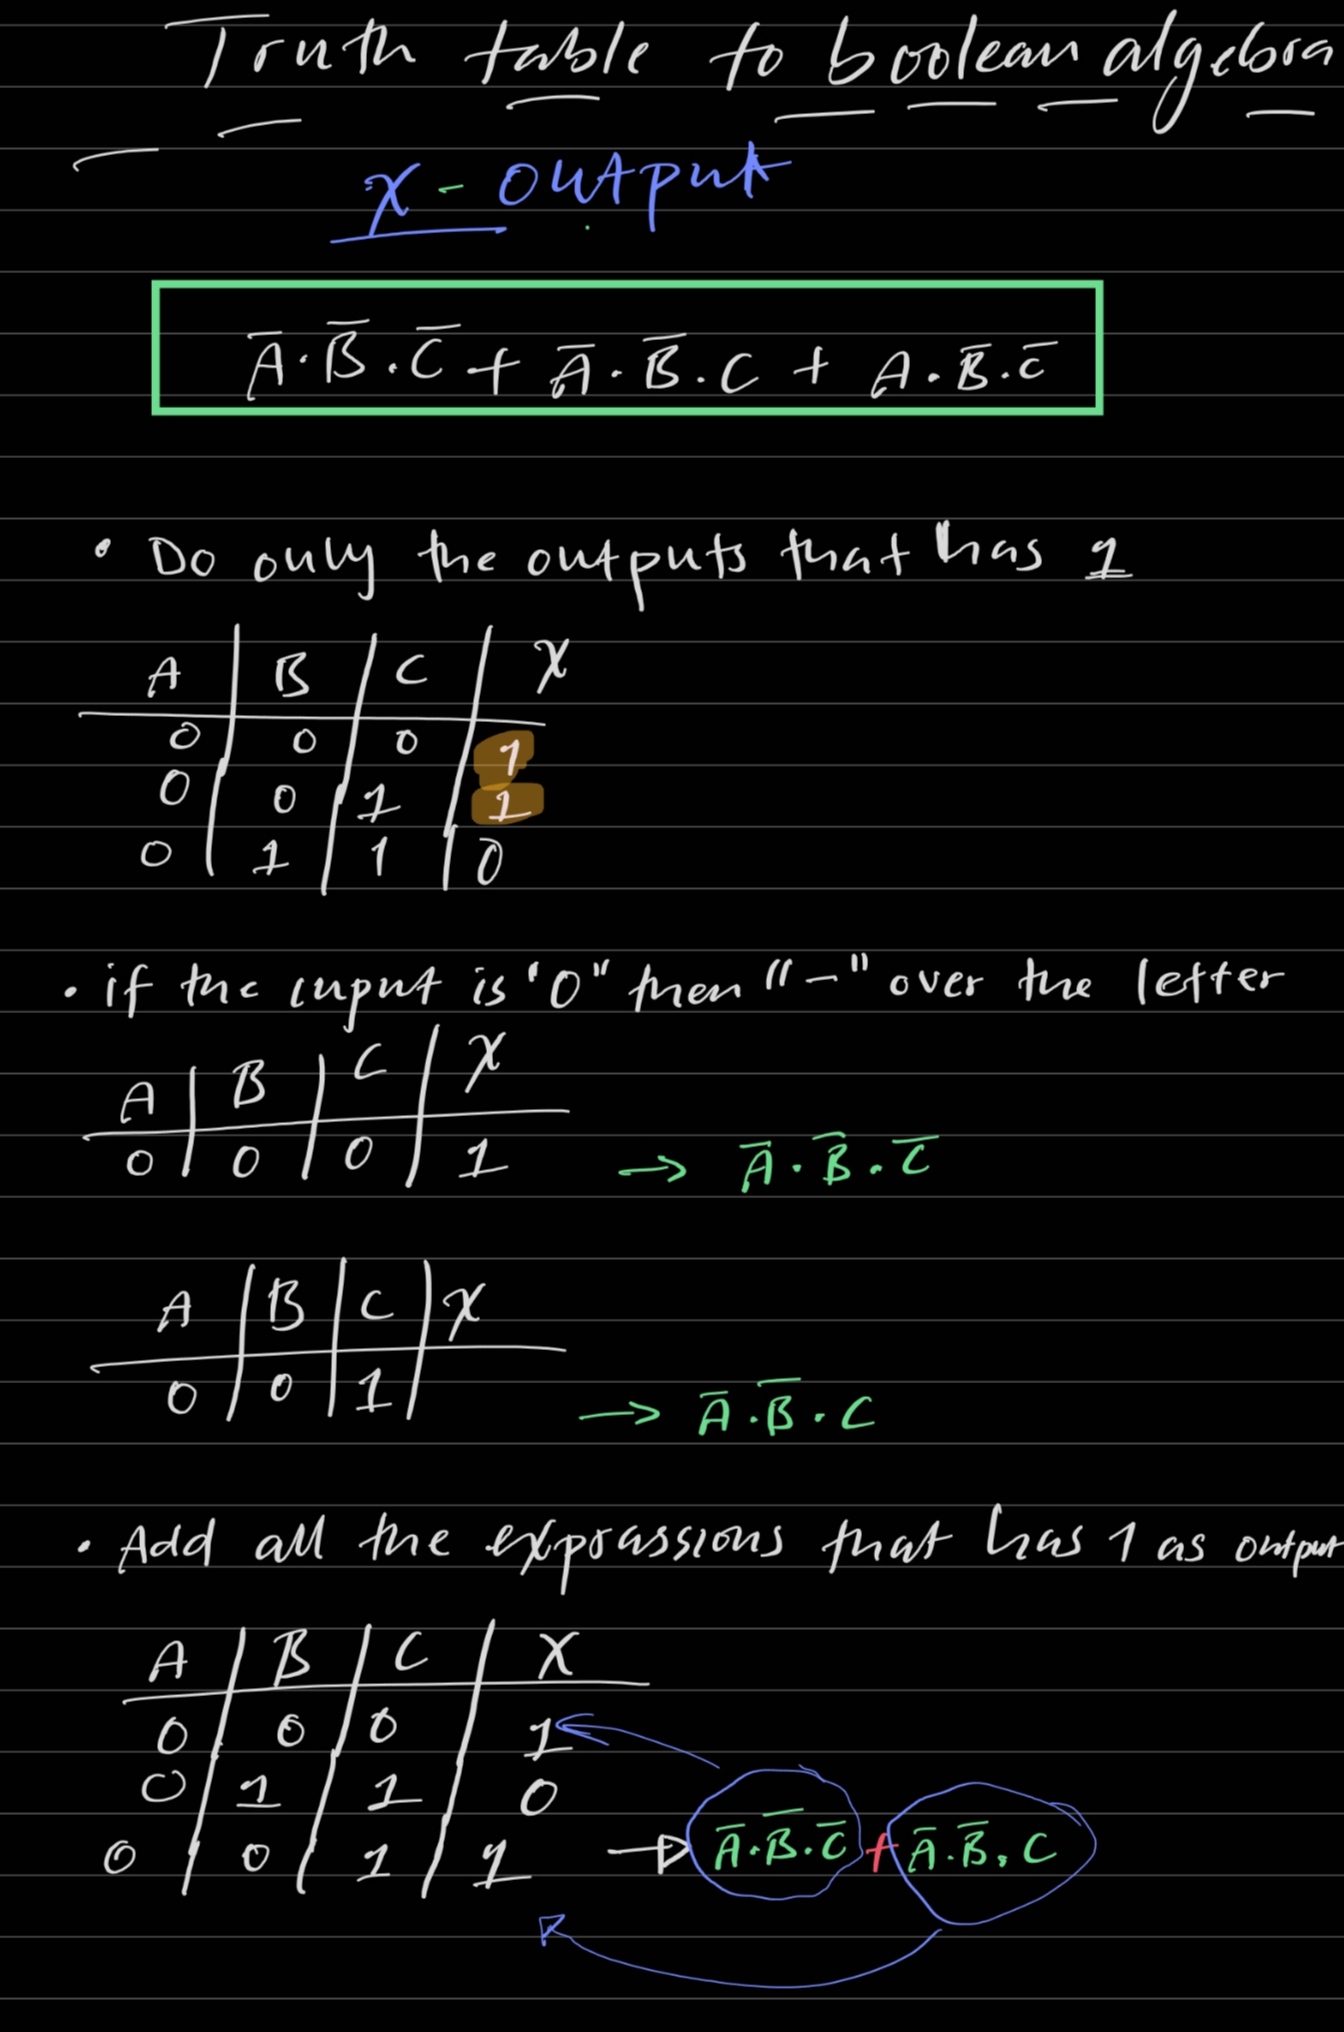 Truth table to boolean algebra
X - output
A̅·B̅·C̅ + A̅·B̅·C + A·B̅·C̅
• Do only the outputs that has 1
A | B | C | X
0 | 0 | 0 | 1
0 | 0 | 1 | 1
0 | 1 | 1 | 0
• if the input is "0" then "-" over the letter
A | B | C | X
0 | 0 | 0 | 1 → A̅·B̅·C̅
A | B | C | X
0 | 0 | 1 | → A̅·B̅·C
• Add all the exprassions that has 1 as output
A | B | C | X
0 | 0 | 0 | 1
0 | 1 | 1 | 0
0 | 0 | 1 | 1 → A̅·B̅·C̅ + A̅·B̅·C